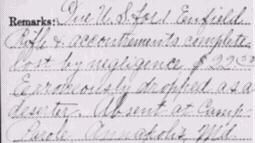 Remarks: Due U.S. for 1 Enfield
Rifle & accoutrements complete
lost by negligence $ 22.00
Earroneously dropped as a
deserter. Absent at Camp
Parole Annapolis, Md